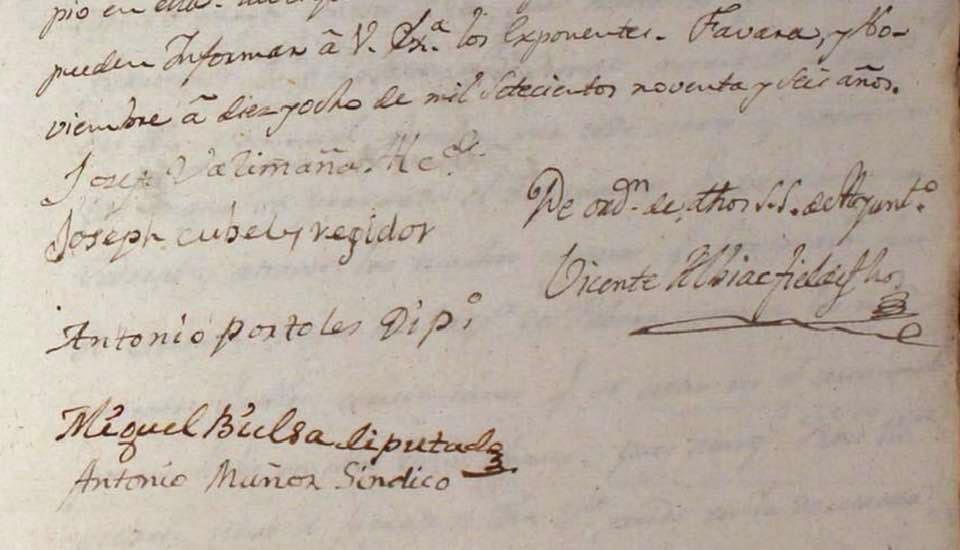 pio en
pueden Informar â V. Exª. los Exponentes. Favara, y No-
viembre â diez y ocho de mil Setecientos noventa y seis años.
Josef Valimaña Alc.de
Joseph cubel y regidor
Antonio portoles Dip.º
Miguel Bielsa diputado
Antonio Muñoz Sindico
De ord.n de dhos S.S. de Ayunt.º
Vicente Albiac fiel de fhos